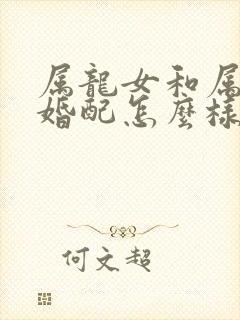 属龍女和属
婚配怎麼樣
何文超